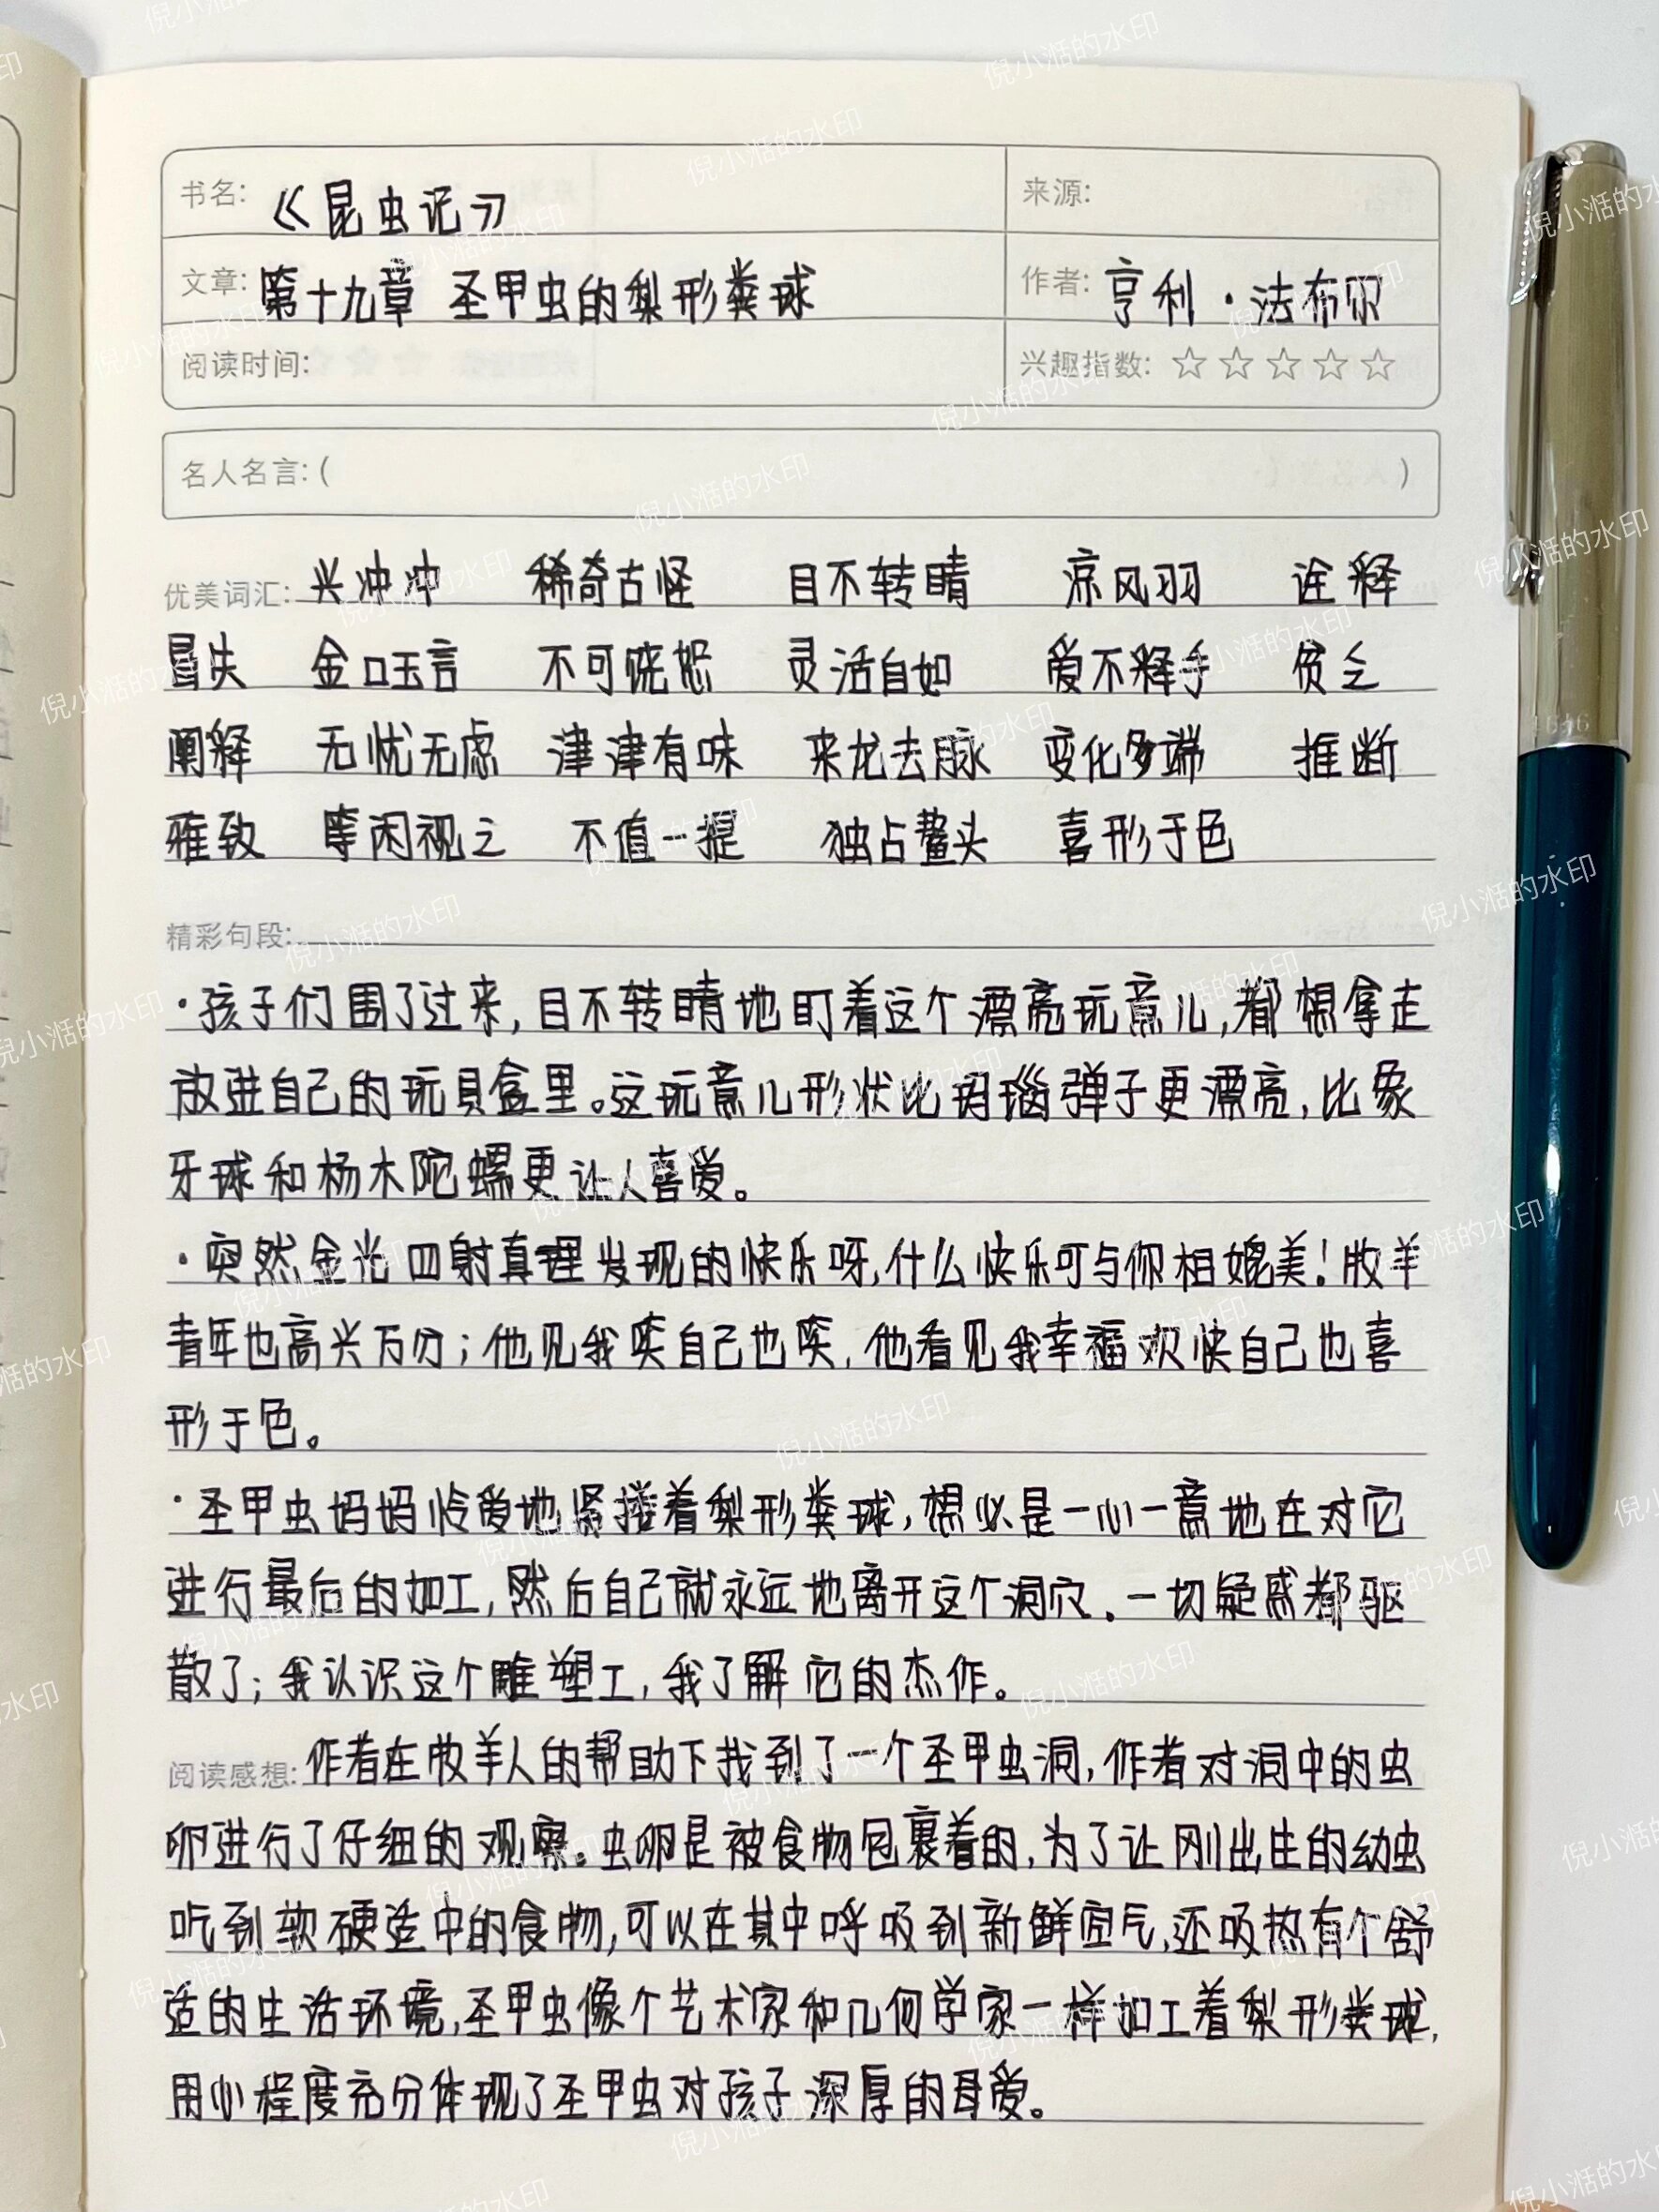 书名: 《昆虫记》 来源:
文章: 第十九章 圣甲虫的梨形粪球 作者: 亨利·法布尔
阅读时间: 兴趣指数: ☆☆☆☆☆
名人名言: ( )
优美词汇: 兴冲冲 稀奇古怪 目不转睛 凉风习习 诠释
冒失 金口玉言 不可饶恕 灵活自如 爱不释手 贫乏
阐释 无忧无虑 津津有味 来龙去脉 变化多端 推断
雅致 等闲视之 不值一提 独占鳌头 喜形于色
精彩句段:
·孩子们围了过来,目不转睛地盯着这个漂亮玩意儿,都想拿走
放进自己的玩具盒里。这玩意儿形状比玛瑙弹子更漂亮,比象
牙球和杨木陀螺更让人喜爱。
·突然金光四射真理发现的快乐呀,什么快乐可与你相媲美!牧羊
青年也高兴万分;他见我笑自己也笑,他看见我幸福欢快自己也喜
形于色。
·圣甲虫妈妈怜爱地紧搂着梨形粪球,想必是一心一意地在对它
进行最后的加工,然后自己就永远地离开这个洞穴.一切疑惑都驱
散了;我认识这个雕塑工,我了解它的杰作。
阅读感想: 作者在牧羊人的帮助下找到了一个圣甲虫洞,作者对洞中的虫
卵进行了仔细的观察。虫卵是被食物包裹着的,为了让刚出生的幼虫
吃到软硬适中的食物,可以在其中呼吸到新鲜空气,还吸热有个舒
适的生活环境,圣甲虫像个艺术家和几何学家一样加工着梨形粪球,
用心程度充分体现了圣甲虫对孩子深厚的母爱。
倪小湉的水印